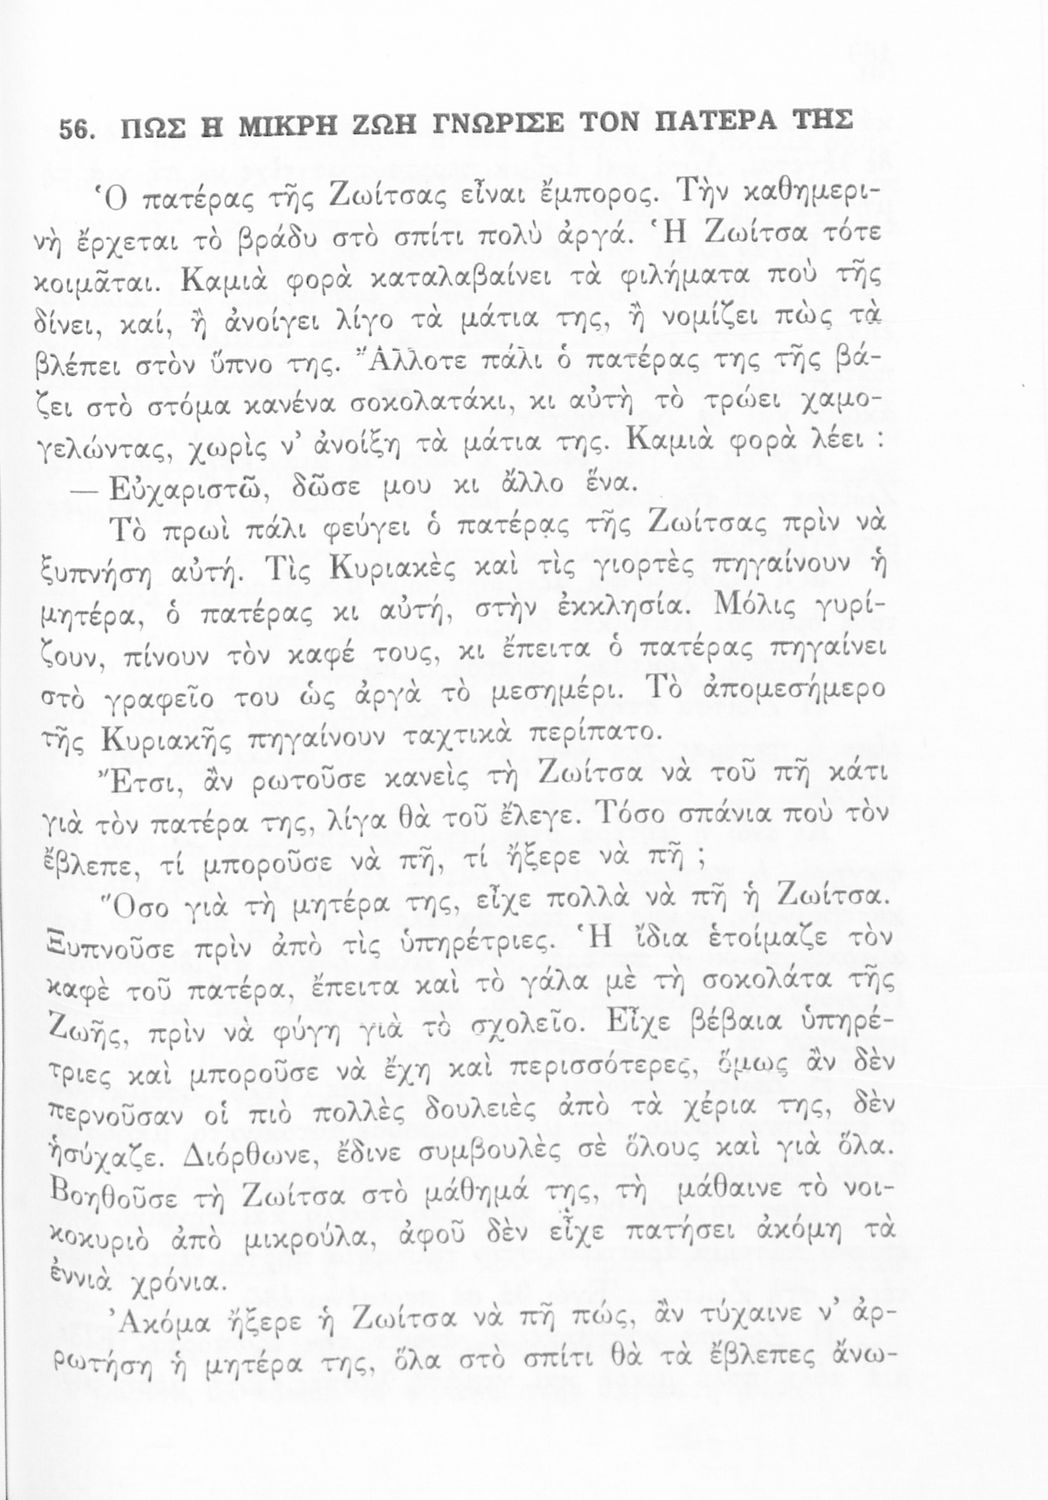 56. ΠΩΣ Η ΜΙΚΡΗ ΖΩΗ ΓΝΩΡΙΣΕ ΤΟΝ ΠΑΤΕΡΑ ΤΗΣ
Ὁ πατέρας τῆς Ζωίτσας εἶναι ἔμπορος. Τὴν καθημερι-
νὴ ἔρχεται τὸ βράδυ στὸ σπίτι πολὺ ἀργά. Ἡ Ζωίτσα τότε
κοιμᾶται. Καμιὰ φορὰ καταλαβαίνει τὰ φιλήματα ποὺ τῆς
δίνει, καί, ἢ ἀνοίγει λίγο τὰ μάτια της, ἢ νομίζει πὼς τὰ
βλέπει στὸν ὕπνο της. Ἄλλοτε πάλι ὁ πατέρας της τῆς βά-
ζει στὸ στόμα κανένα σοκολατάκι, κι αὐτὴ τὸ τρώει χαμο-
γελώντας, χωρὶς ν’ ἀνοίξη τὰ μάτια της. Καμιὰ φορὰ λέει :
— Εὐχαριστῶ, δῶσε μου κι ἄλλο ἕνα.
Τὸ πρωὶ πάλι φεύγει ὁ πατέρας τῆς Ζωίτσας πρὶν νὰ
ξυπνήση αὐτή. Τὶς Κυριακὲς καὶ τὶς γιορτὲς πηγαίνουν ἡ
μητέρα, ὁ πατέρας κι αὐτή, στὴν ἐκκλησία. Μόλις γυρί-
ζουν, πίνουν τὸν καφέ τους, κι ἔπειτα ὁ πατέρας πηγαίνει
στὸ γραφεῖο του ὡς ἀργὰ τὸ μεσημέρι. Τὸ ἀπομεσήμερο
τῆς Κυριακῆς πηγαίνουν ταχτικὰ περίπατο.
Ἔτσι, ἂν ρωτοῦσε κανεὶς τὴ Ζωίτσα νὰ τοῦ πῆ κάτι
γιὰ τὸν πατέρα της, λίγα θὰ τοῦ ἔλεγε. Τόσο σπάνια ποὺ τὸν
ἔβλεπε, τί μποροῦσε νὰ πῆ, τί ἤξερε νὰ πῆ ;
Ὅσο γιὰ τὴ μητέρα της, εἶχε πολλὰ νὰ πῆ ἡ Ζωίτσα.
Ξυπνοῦσε πρὶν ἀπὸ τὶς ὑπηρέτριες. Ἡ ἴδια ἑτοίμαζε τὸν
καφὲ τοῦ πατέρα, ἔπειτα καὶ τὸ γάλα μὲ τὴ σοκολάτα τῆς
Ζωῆς, πρὶν νὰ φύγη γιὰ τὸ σχολεῖο. Εἶχε βέβαια ὑπηρέ-
τριες καὶ μποροῦσε νὰ ἔχη καὶ περισσότερες, ὅμως ἂν δὲν
περνοῦσαν οἱ πιὸ πολλὲς δουλειὲς ἀπὸ τὰ χέρια της, δὲν
ἡσύχαζε. Διόρθωνε, ἔδινε συμβουλὲς σὲ ὅλους καὶ γιὰ ὅλα.
Βοηθοῦσε τὴ Ζωίτσα στὸ μάθημά της, τὴ μάθαινε τὸ νοι-
κοκυριὸ ἀπὸ μικρούλα, ἀφοῦ δὲν εἶχε πατήσει ἀκόμη τὰ
ἐννιὰ χρόνια.
Ἀκόμα ἤξερε ἡ Ζωίτσα νὰ πῆ πώς, ἂν τύχαινε ν’ ἀρ-
ρωτήση ἡ μητέρα της, ὅλα στὸ σπίτι θὰ τὰ ἔβλεπες ἄνω-